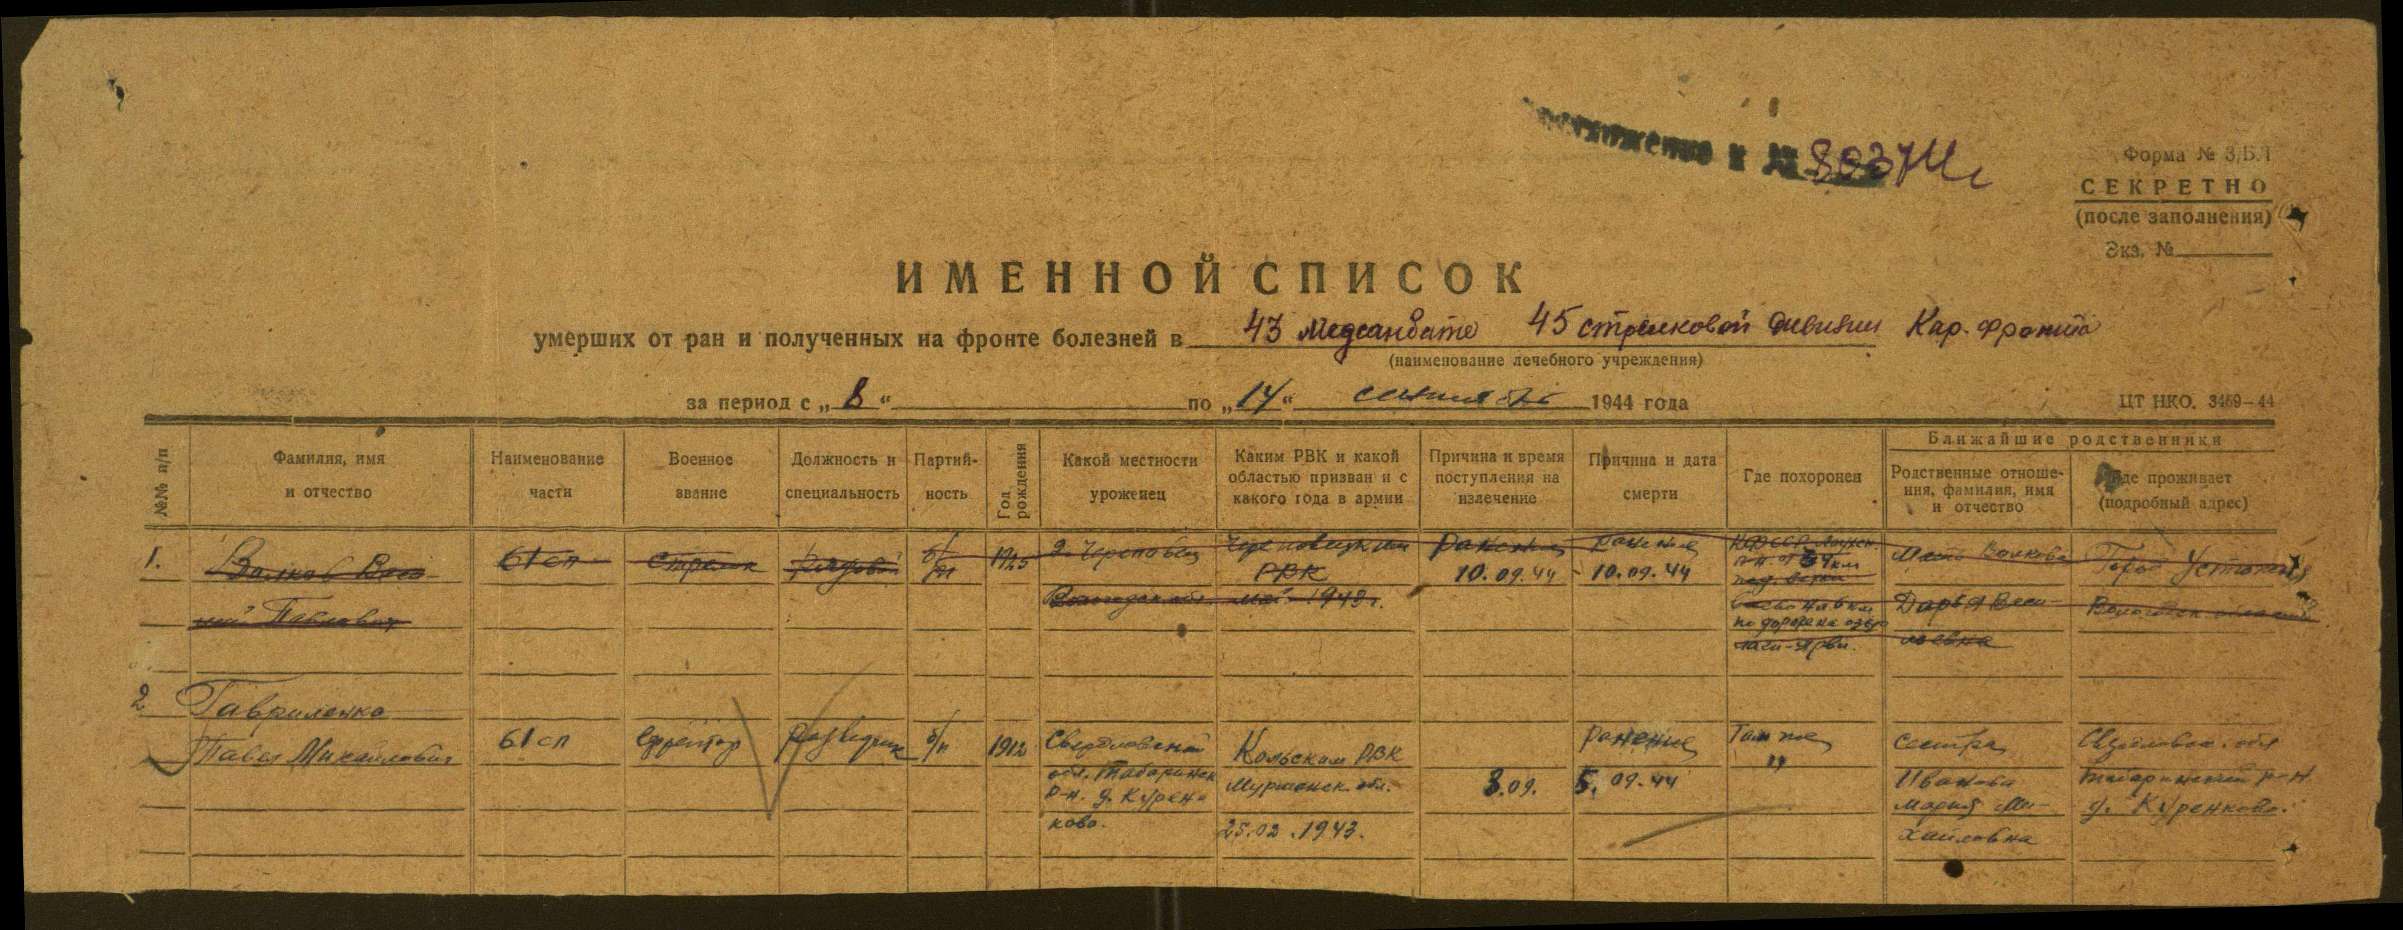 приложение к № 80374с
Форма № 3/БЛ
СЕКРЕТНО
(после заполнения)
Экз. №
ИМЕННОЙ СПИСОК
умерших от ран и полученных на фронте болезней в 43 медсанбате 45 стрелковой дивизии Кар. фронта
(наименование лечебного учреждения)
за период с „8“ по „14“ сентября 1944 года
ЦТ НКО. 3469–44
№№ п/п
Фамилия, имя
и отчество
Наименование
части
Военное
звание
Должность и
специальность
Партий-
ность
Год
рождения
Какой местности
уроженец
Каким РВК и какой
областью призван и с
какого года в армии
Причина и время
поступления на
излечение
Причина и дата
смерти
Где похоронен
Ближайшие родственники
Родственные отноше-
ния, фамилия, имя
и отчество
Где проживает
(подробный адрес)
1.
Волков Васи
лий Павлович
61 сп
стрелок
рядовой
б/п
1925
г. Череповец
Вологодск. обл.
Череповецким
РВК
май 1943 г.
ранение
10.09.44
ранение
10.09.44
КФССР
км
по дороге на озеро
Мать Волкова
Дарья Васи-
льевна
Город Устюжна
Вологодск области
2
Гавриленко
Павел Михайлович
61 сп
Ефрейтор
разведчик
б/п
1912
Свердловской
обл. Табаринск
р-н. д. Курень
ково.
Кольским РВК
Мурманск. обл.
25.02.1943.
3.09.
ранение
5.09.44
Там же
"
сестра
Иванова
Мария Ми-
хайловна
Свердловск. обл
Табаринский р-н.
д. Куренково.